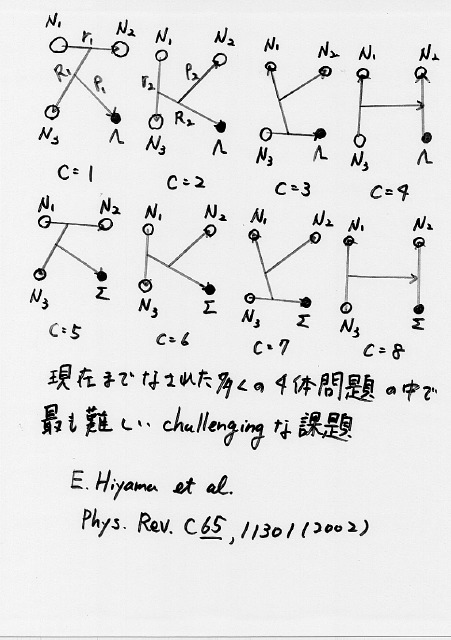 N₁ r₁ N₂ R₁ ρ₁ N₃ Λ
C=1
N₁ N₂ r₂ ρ₂ R₂ N₃ Λ
C=2
N₁ N₂ N₃ Λ
C=3
N₁ N₂ N₃ Λ
C=4
N₁ N₂ N₃ Σ
C=5
N₁ N₂ N₃ Σ
C=6
N₁ N₂ N₃ Σ
C=7
N₁ N₂ N₃ Σ
C=8
現在までなされた多くの4体問題の中で
最も難しい challengingな課題
E. Hiyama et al.
Phys. Rev. C65, 11301 (2002)